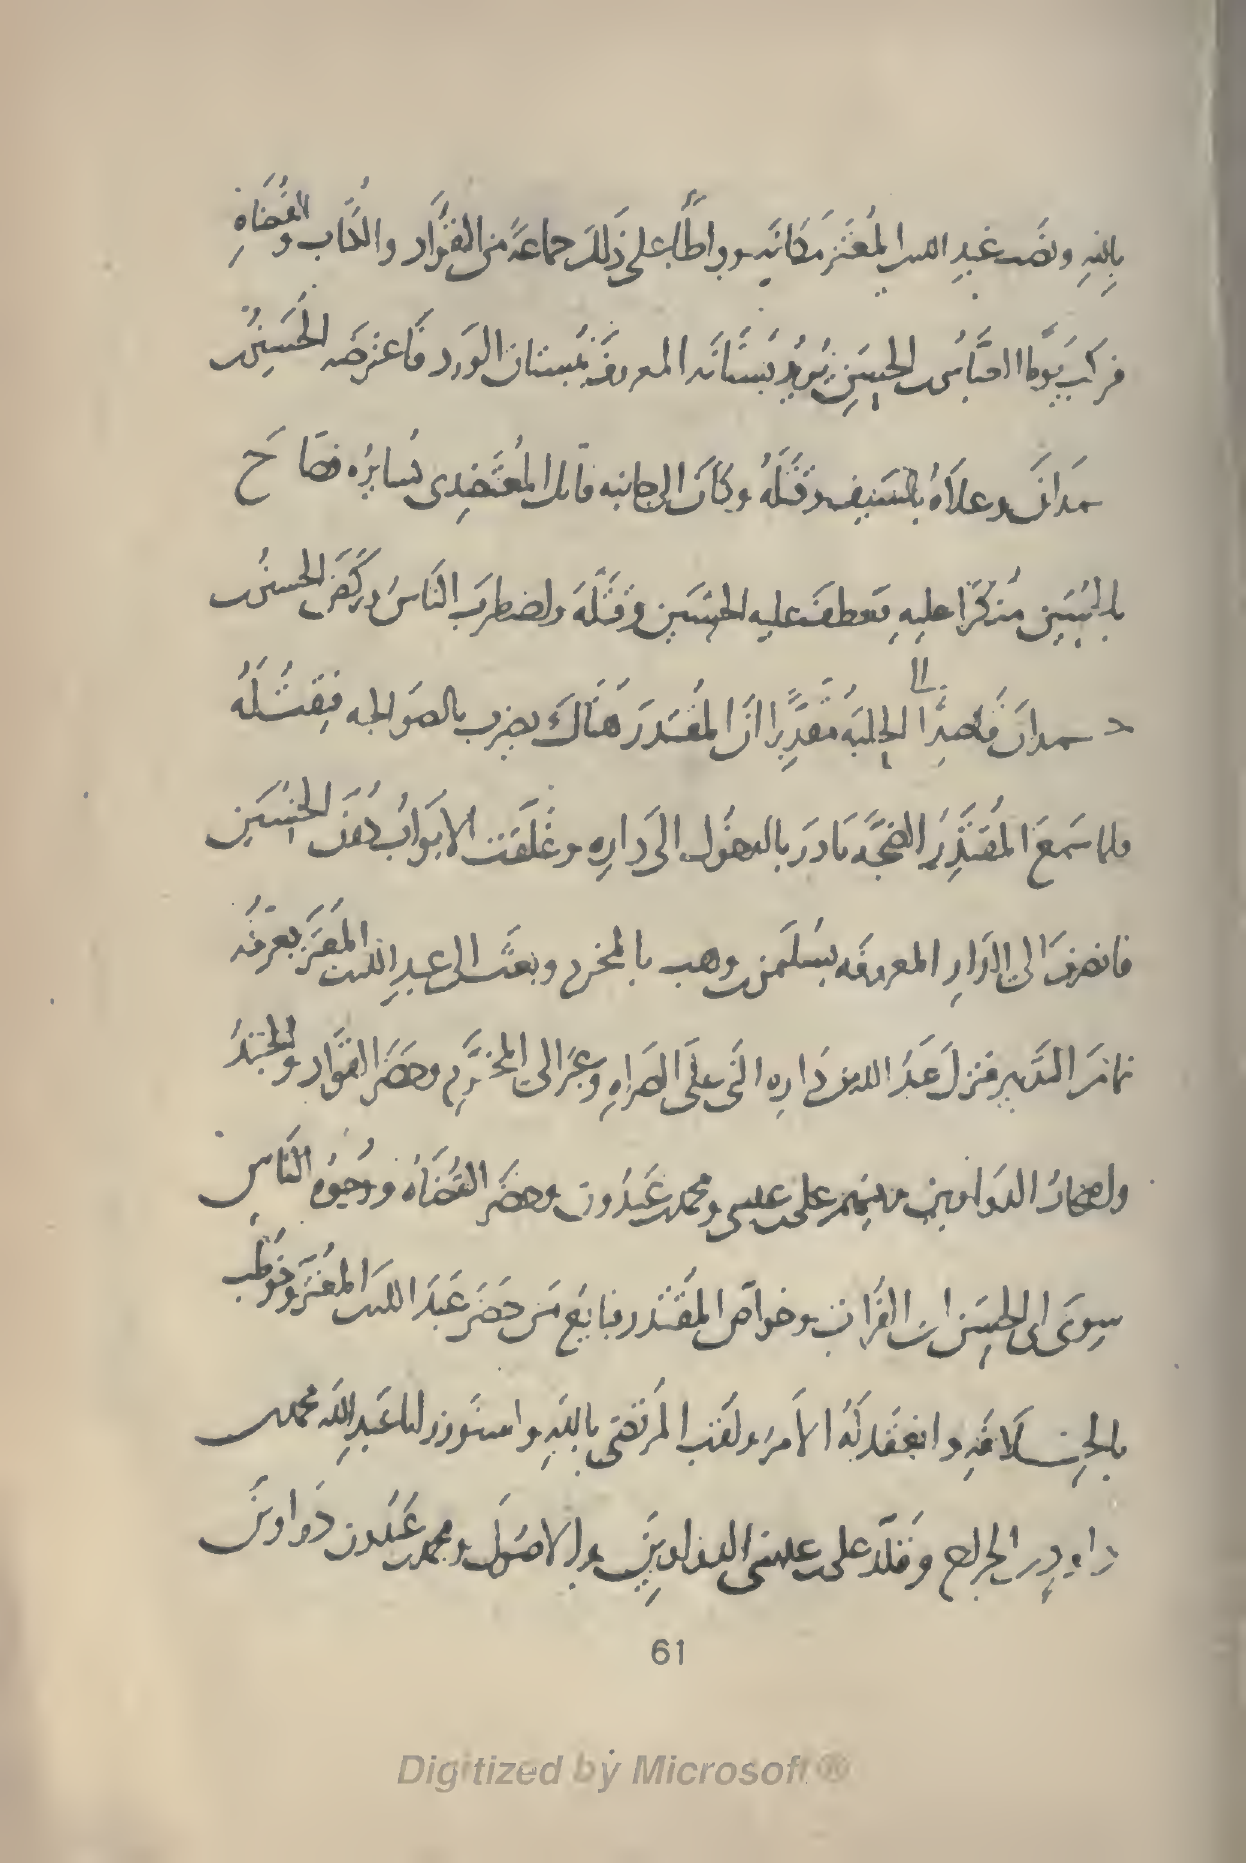 بالله ونصب عبد الله بن المعتز مكانه وواطأ على ذلك جماعة من القواد والكتاب والقضاة
فركب يوما العباس بن الحسن يريد بستانه المعروف ببستان الورد فاعترضه الحسين بن
حمدان وعلاه بالسيف وقتله وكان الى جانبه فاتك المعتضدى يسايره فصاح
بالحسين منكرا عليه فعطف عليه الحسين وقتله واضطرب الناس وركض الحسين بن
حمدان قاصدا الى الحلبة مقدرا ان المقتدر هناك يضرب بالصوالجه فيقتله
ولما سمع المقتدر الضجه بادر بالدخول الى داره وغلقت الابواب دون الحسين
فانصرف الى الدار المعروفه بسليمن بن وهب بالمخرم وبعث الى عبد الله بن المعتز يعرفه
تمام التدبير فنزل عبد الله من داره التى على الصراه وعبر الى المخرم وحضر القواد والجند
واصحاب الدواوين منهم على بن عيسى ومحمد بن عبدون وحضر القضاة ووجوه الناس
سوى ابى الحسن ابن الفرات وخواص المقتدر فبايع من حضر عبد الله بن المعتز وخوطب
بالخلافة وانعقد له الامر ولقب المرتضى بالله واستوزر ابا عبد الله محمد بن
داود بن الجراح وقلد على بن عيسى الدواوين والاصول ومحمد بن عبدون دواوين
61
Digitized by Microsoft ®